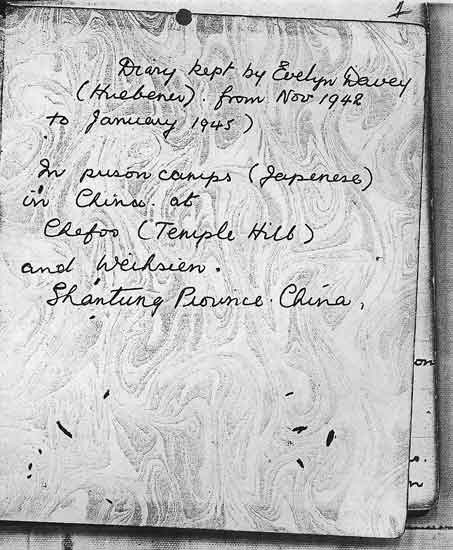 1
Diary kept by Evelyn Davey
(Huebener). from Nov 1942
to January 1945)
In prison camps (Japenese)
in China. at
Chefoo (Temple Hill)
and Weihsien.
Shantung Province. China,
on
s.
n